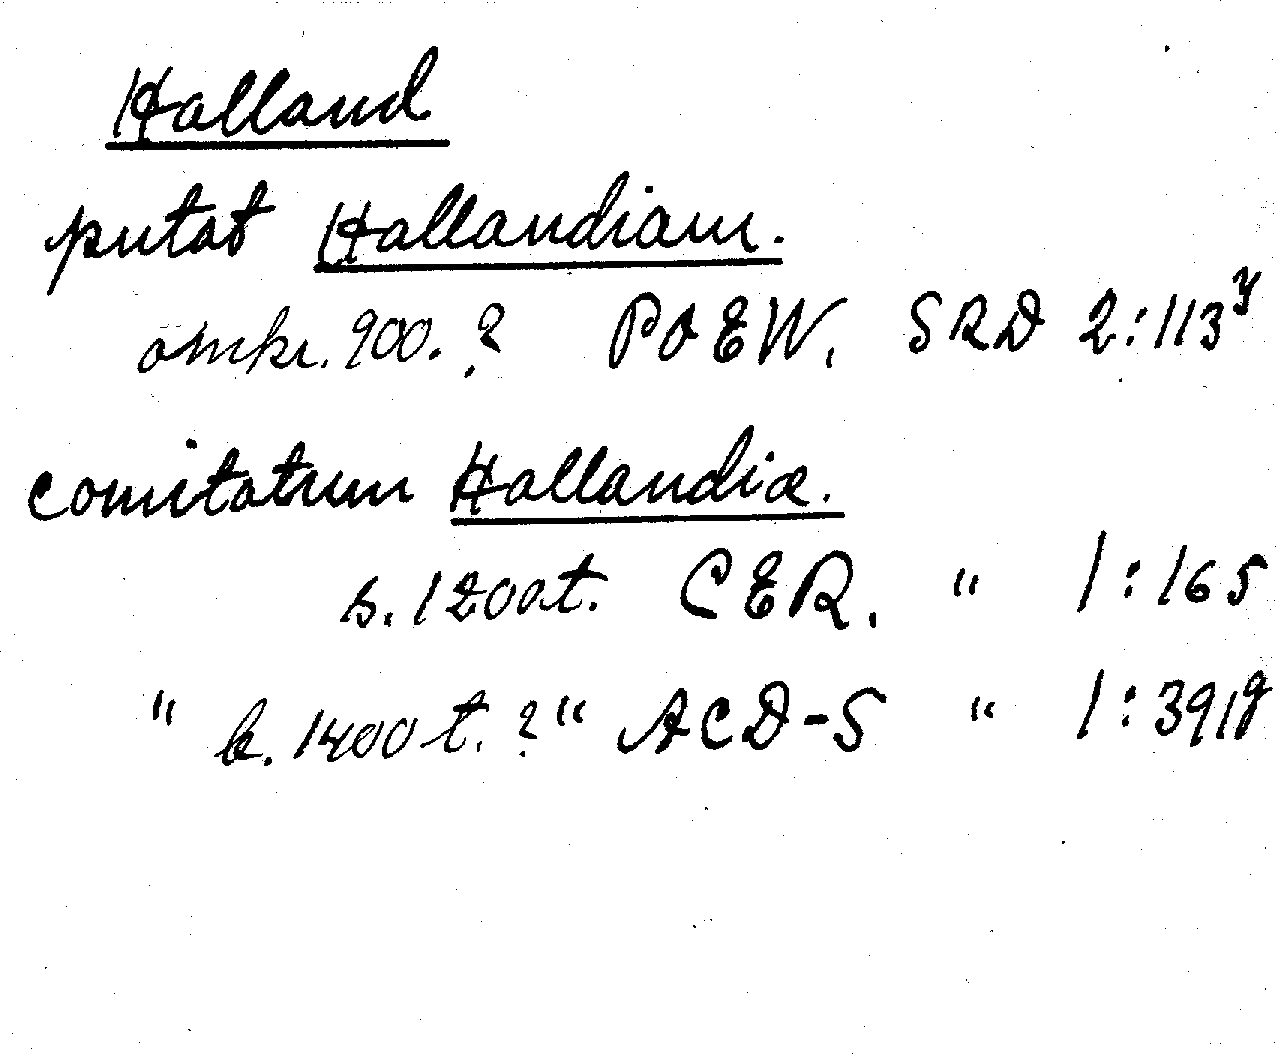 Halland
putat Hallandiam.
omkr. 900. ? POEW. SRD 2:113y
comitatum Hallandiæ.
s. 1200t. CER. " 1:165
" b. 1400t. ? " ACD-S " 1:391g